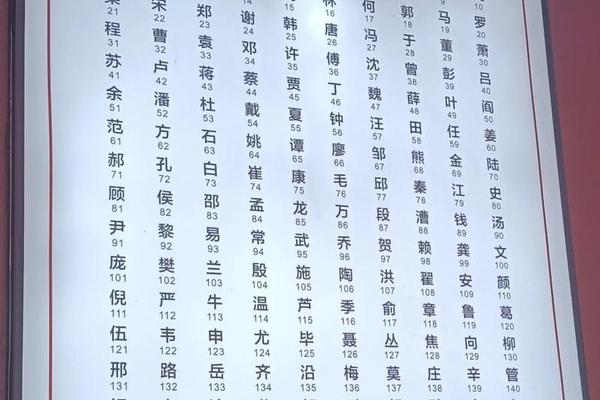 9 10
林 何 郭 马 罗
16 17 18 19 20
宋 郑 谢 韩 唐 冯 于 董 萧
21 22 23 24 25 26 27 28 29 30
程 曹 袁 邓 许 傅 沈 曾 彭 吕
31 32 33 34 35 36 37 38 39 40
苏 卢 蒋 蔡 贾 丁 魏 薛 叶 阎
41 42 43 44 45 46 47 48 49 50
余 潘 杜 戴 夏 钟 汪 田 任 姜
51 52 53 54 55 56 57 58 59 60
范 方 石 姚 谭 廖 邹 熊 金 陆
61 62 63 64 65 66 67 68 69 70
郝 孔 白 崔 康 毛 邱 秦 江 史
71 72 73 74 75 76 77 78 79 80
顾 侯 邵 孟 龙 万 段 漕 钱 汤
81 82 83 84 85 86 87 88 89 90
尹 黎 易 常 武 乔 贺 赖 龚 文
91 92 93 94 95 96 97 98 99 100
庞 樊 兰 殷 施 陶 洪 翟 安 颜
101 102 103 104 105 106 107 108 109 110
倪 严 牛 温 芦 季 俞 章 鲁 葛
111 112 113 114 115 116 117 118 119 120
伍 韦 申 尤 毕 聂 丛 焦 向 柳
121 122 123 124 125 126 127 128 129 130
邢 路 岳 齐 沿 梅 莫 庄 辛 管
131 132 133 134 135 136 137 138 139 140